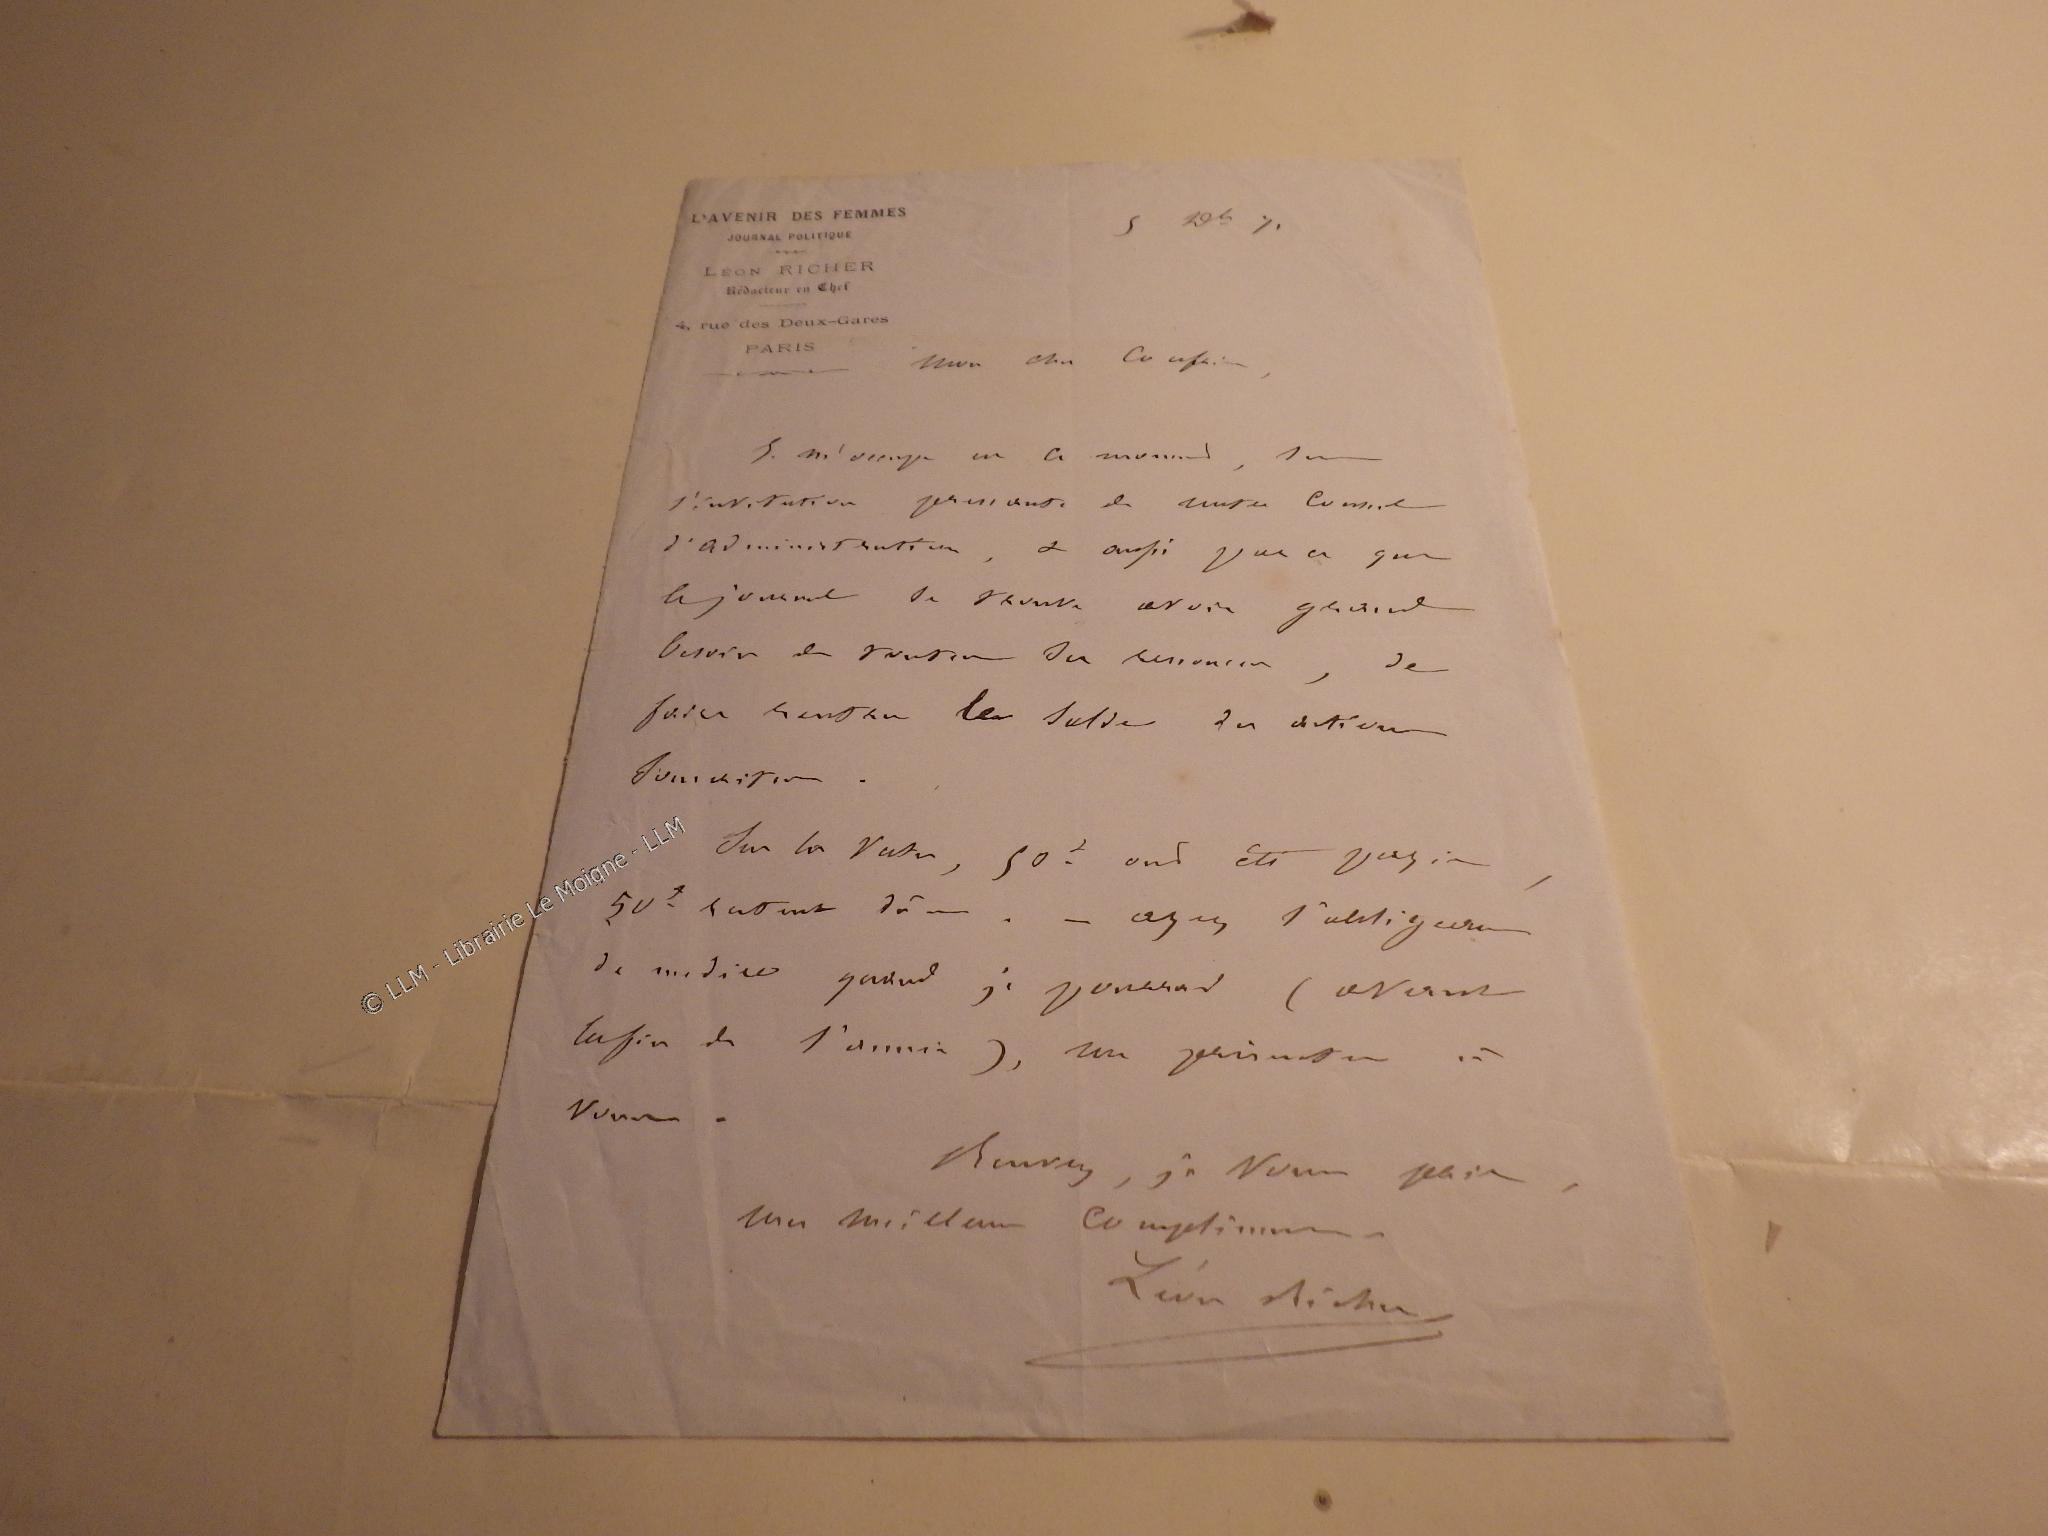 L'AVENIR DES FEMMES
JOURNAL POLITIQUE
LÉON RICHER
Rédacteur en Chef
4, rue des Deux-Gares
PARIS
5
Mon cher Confrère,
Je m'occupe en ce moment, sur
l'invitation pressante de notre Conseil
d'administration, & aussi parce que
le journal se trouve avoir grand
besoin de toutes ses ressources, de
faire rentrer le solde des actions
souscrites.
Sur la vôtre, 50f ont été payés,
50f restent dûs. — ayez l'obligeance
de me dire quand je pourrai (avant
la fin de l'année), me présenter chez
vous.
Recevez, je vous prie,
mes meilleurs compliments.
Léon Richer
© LLM - Librairie Le Moigne - LLM